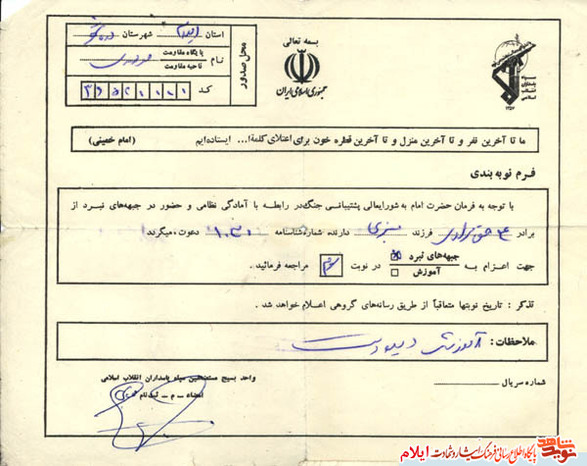 بسمه تعالی
جمهوری اسلامی ایران
سپاه پاسداران انقلاب اسلامی
محل صدور
استان ایلام شهرستان دره شهر
نام پایگاه مقاومت
ناحیه مقاومت
کد
ما تا آخرین نفر و تا آخرین منزل و تا آخرین قطره خون برای اعتلای کلمة ا... ایستاده‌ایم (امام خمینی)
فرم نوبه بندی
با توجه به فرمان حضرت امام به شورایعالی پشتیبانی جنگ در رابطه با آمادگی نظامی و حضور در جبهه‌های نبرد از
برادر فرزند دارنده شماره شناسنامه دعوت میگردد
جهت اعزام به جبهه‌های نبرد
آموزش
در نوبت مراجعه فرمائید.
تذکر : تاریخ نوبتها متعاقباً از طریق رسانه‌های گروهی اعلام خواهد شد .
ملاحظات: آموزشی دیده است
شماره سریال
واحد بسیج مستضعفین سپاه پاسداران انقلاب اسلامی
امضاء - م - ثبت نام
نوید شاهد
پایگاه اطلاع رسانی فرهنگ ایثار و شهادت ایلام